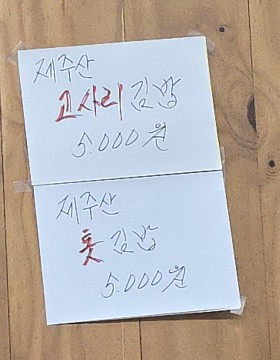 제주산
고사리 김밥
5.000원
제주산
톳 김밥
5.000원